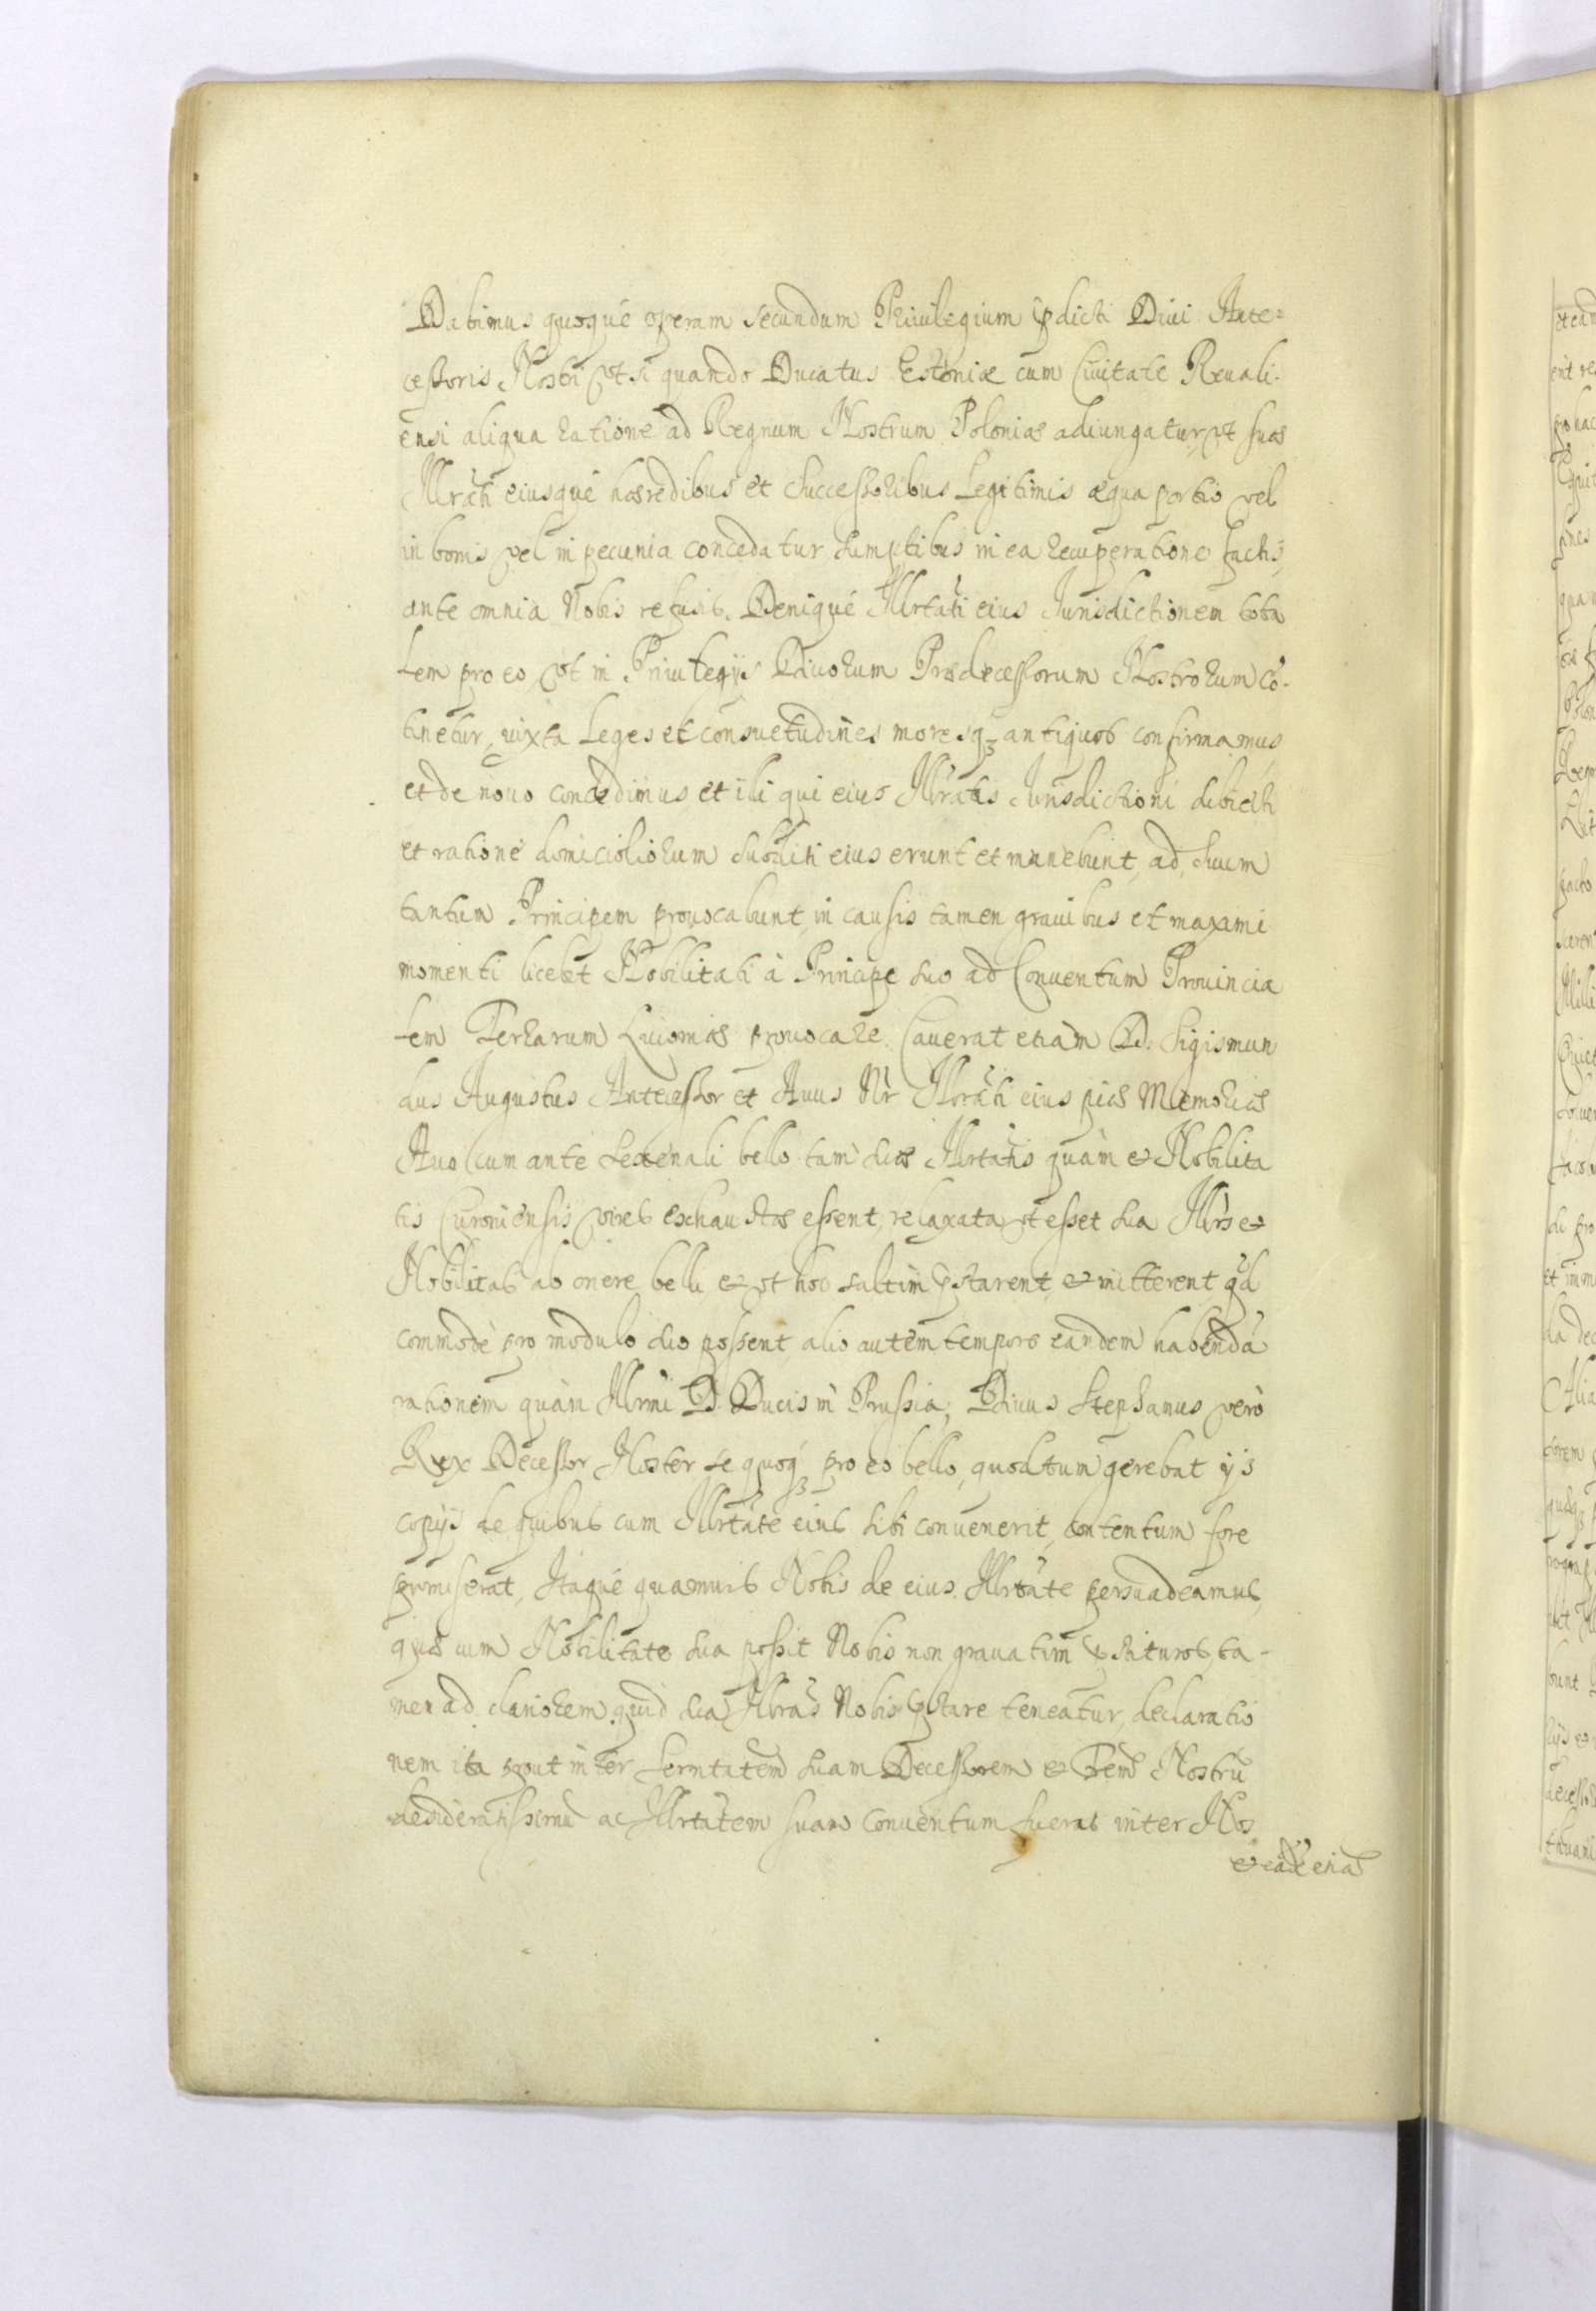 Dabimus quoqué operam secundum Priuilegium p̃dicti Diui Ante=
cessoris Nostri vt si quando Ducatus Estoniæ cum Ciuitate Reuali-
ensi aliqua ratione ad Regnum Nostrum Poloniæ adiungatur, vt suæ
Illrãti eiusqué hæredibus et Successoribus Legitimis æqua portio vel
in bonis vel in pecunia concedatur sumptibus in ea recuperatione factis,
ante omnia Nobis refusis. Deniqué Illrtãti eius Jurisdictionem tota
lem pro eo, vt in Priuilegijs Diuorum Prædecessorum Nostrorum cõ-
tinetur, iuxta Leges et consuetudines moresq₃ antiquos confirmamus,
et de nouo concedimus et illi qui eius Illrãtis Jurisdictioni subiecti
et ratione domiciliorum subditi eius erunt et manebunt, ad suum
tantum Principem prouocabunt, in causis tamen grauibus et maximi
momenti licebit Nobilitati à Principe suo ad Conuentum Prouincia
lem Terrarum Liuoniæ prouocare. Cauerat etiam D. Sigismun
dus Augustus Antecessor et Auus Nr̃ Illrãti eius piæ Memoriæ
Auo cum ante bello tam suæ Illrtãtis quàm & Nobilita
tis Curoniensis vires exhaustæ essent, relaxata vt esset sua Illrs̃ &
Nobilitas ab onere belli & vt hoc saltim p̃starent & mitterent qd̃
commodè pro modulo suo possent, alio autem tempore eandem habendã
rationem quàm Illrmi D. Ducis in Prussia; Diuus Stephanus verò
Rex Decessor Noster se quoq₃ pro eo bello, quod tum gerebat ijs
copijs de quibus cum Illrtãte eius sibi conuenerit, contentum fore
promiserat, Itaqué quamuis Nobis de eius Illrtãte persuadeamus,
quæ cum Nobilitate sua possit Nobis non grauatim p̃stituros, ta-
men ad clariorem quid sua Illrãs Nobis p̃stare teneatur, declaratio
nem ita prout inter Sermtatem suam Decessorem & Nostrũ
desideratissimũ ac Illrtãtem suam conuentum fuerat inter Nos
& eadẽ etiã